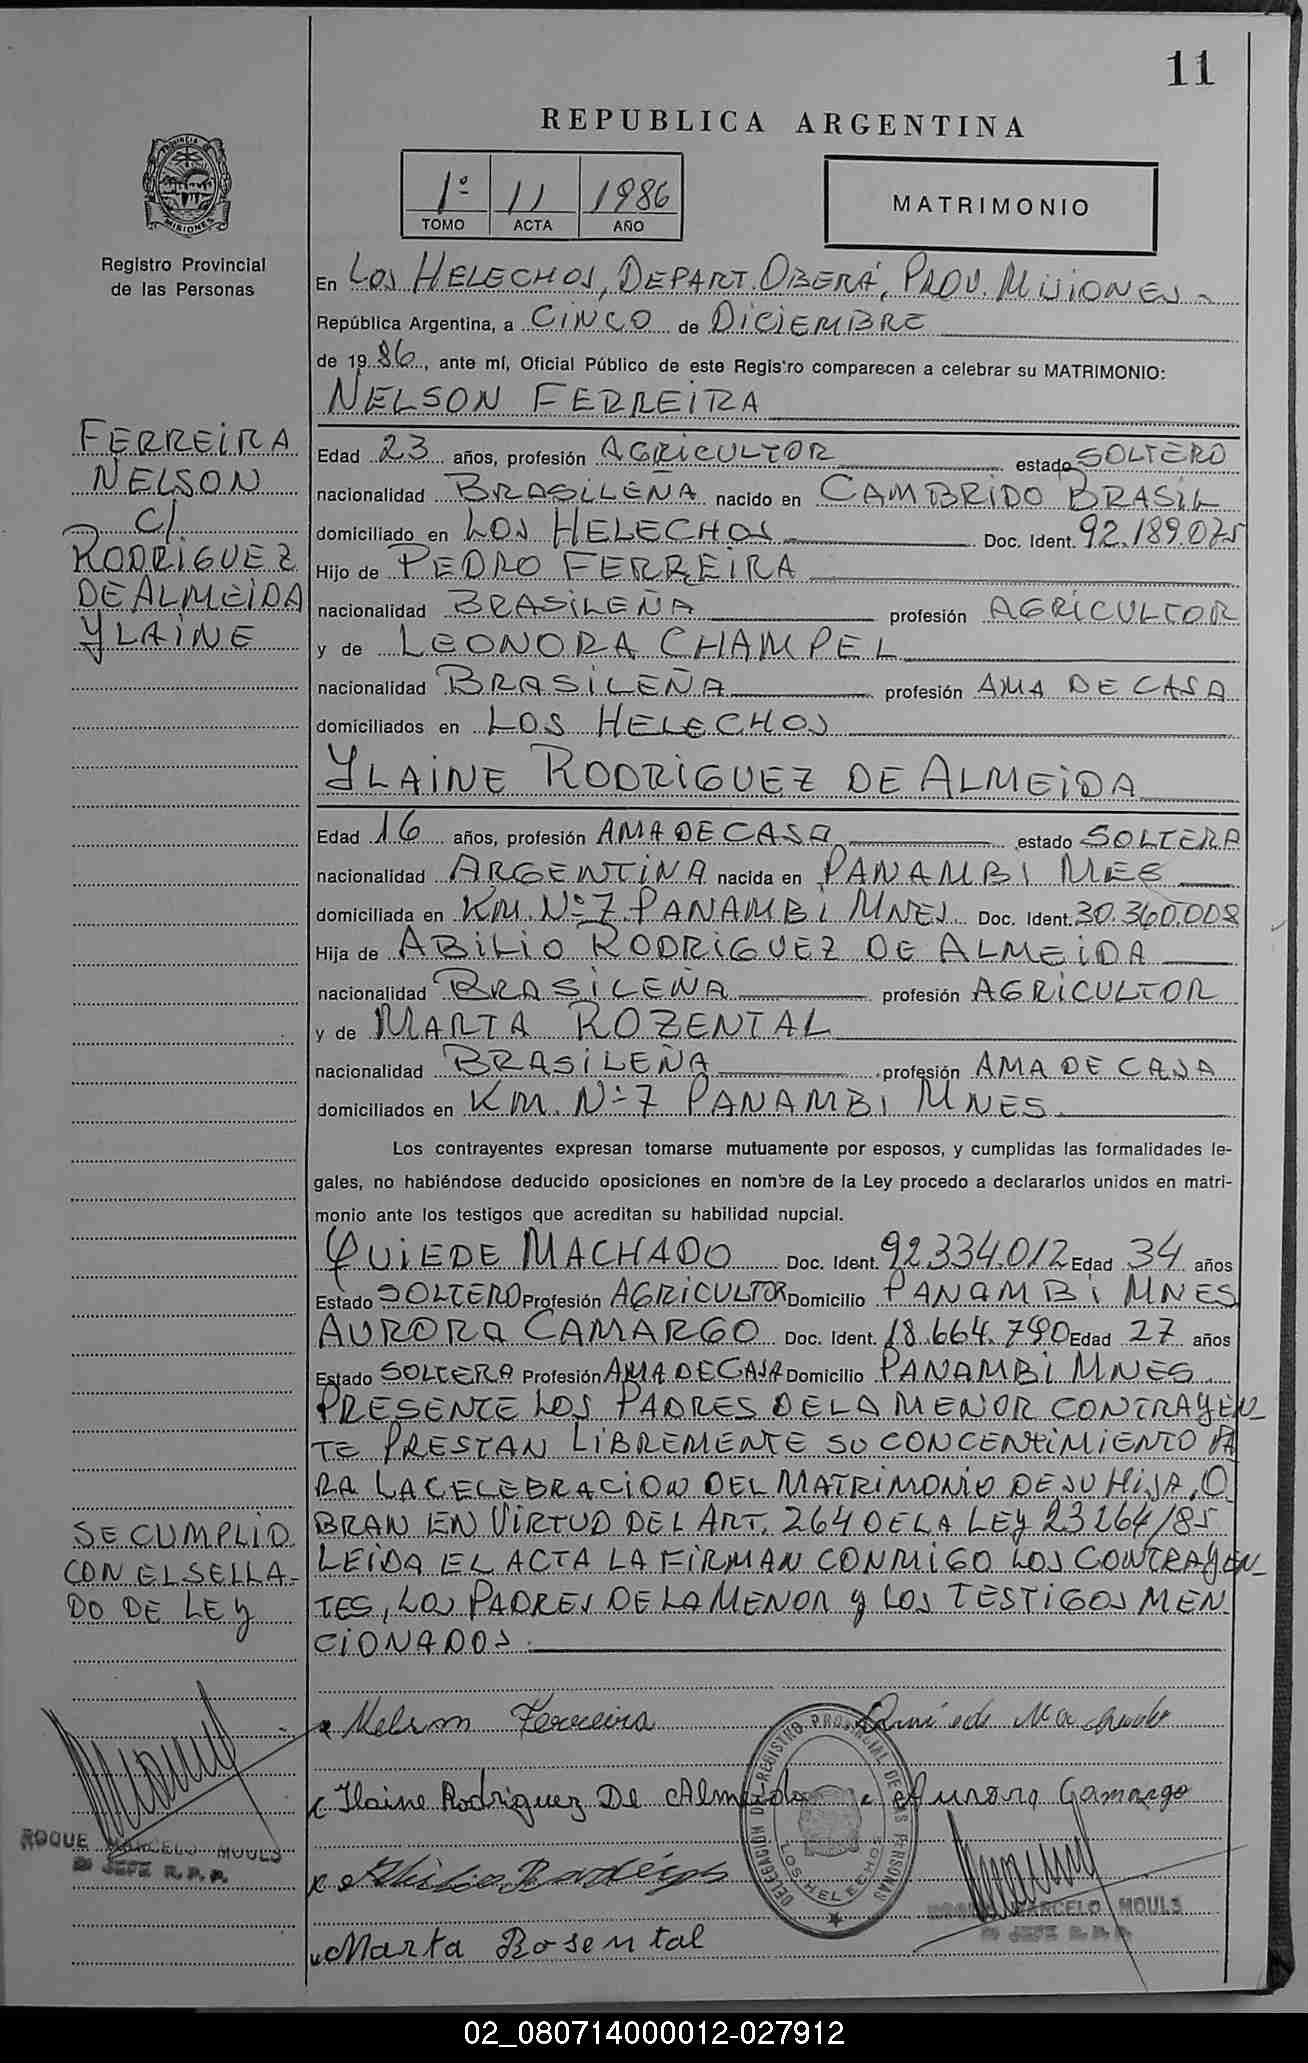 11
REPUBLICA ARGENTINA
1º 11 1986
TOMO ACTA AÑO
MATRIMONIO
PROVINCIA DE MISIONES
Registro Provincial
de las Personas
En LOS HELECHOS, DEPART. OBERÁ, PROV. MISIONES
República Argentina, a CINCO de DICIEMBRE
de 1986, ante mí, Oficial Público de este Registro comparecen a celebrar su MATRIMONIO:
NELSON FERREIRA
FERREIRA
NELSON
C/
RODRIGUEZ
DE ALMEIDA
YLAINE
Edad 23 años, profesión AGRICULTOR estado SOLTERO
nacionalidad BRASILEÑA nacido en CAMBRIDO BRASIL
domiciliado en LOS HELECHOS Doc. Ident. 92.189.075
Hijo de PEDRO FERREIRA
nacionalidad BRASILEÑA profesión AGRICULTOR
y de LEONORA CHAMPEL
nacionalidad BRASILEÑA profesión AMA DE CASA
domiciliados en LOS HELECHOS
YLAINE RODRIGUEZ DE ALMEIDA
Edad 16 años, profesión AMA DE CASA estado SOLTERA
nacionalidad ARGENTINA nacida en PANAMBI
domiciliada en KM. Nº 7 PANAMBI MNES Doc. Ident. 30.360.008
Hija de ABILIO RODRIGUEZ DE ALMEIDA
nacionalidad BRASILEÑA profesión AGRICULTOR
y de MARTA ROZENTAL
nacionalidad BRASILEÑA profesión AMA DE CASA
domiciliados en KM. Nº 7 PANAMBI MNES.
Los contrayentes expresan tomarse mutuamente por esposos, y cumplidas las formalidades le-
gales, no habiéndose deducido oposiciones en nombre de la Ley procedo a declararlos unidos en matri-
monio ante los testigos que acreditan su habilidad nupcial.
QUIEDE MACHADO Doc. Ident. 92.334.012 Edad 34 años
Estado SOLTERO Profesión AGRICULTOR Domicilio PANAMBI MNES
AURORA CAMARGO Doc. Ident. 18.664.790 Edad 27 años
Estado SOLTERA Profesión AMA DE CASA Domicilio PANAMBI MNES
PRESENTE LOS PADRES DE LA MENOR CONTRAYEN
TE PRESTAN LIBREMENTE SU CONCENTIMIENTO PA
RA LA CELEBRACION DEL MATRIMONIO DE SU HIJA, O
BRAN EN VIRTUD DEL ART. 264 DE LA LEY 23264/85
LEIDA EL ACTA LA FIRMAN CONMIGO LOS CONTRAYEN-
TES, LOS PADRES DE LA MENOR Y LOS TESTIGOS MEN
CIONADOS.
SE CUMPLIO
CON EL SELLA-
DO DE LEY
Nelson Ferreira
Machado
Ilaine Rodriguez De Almeida
Aurora Camargo
Marta Rosental
DELEGACION DEL REGISTRO PROVINCIAL DE LAS PERSONAS
LOS HELECHOS
ROQUE MARCELO MOULS
JEFE R.P.P.
MARCELO MOULS
JEFE R.P.P.
02_080714000012-027912